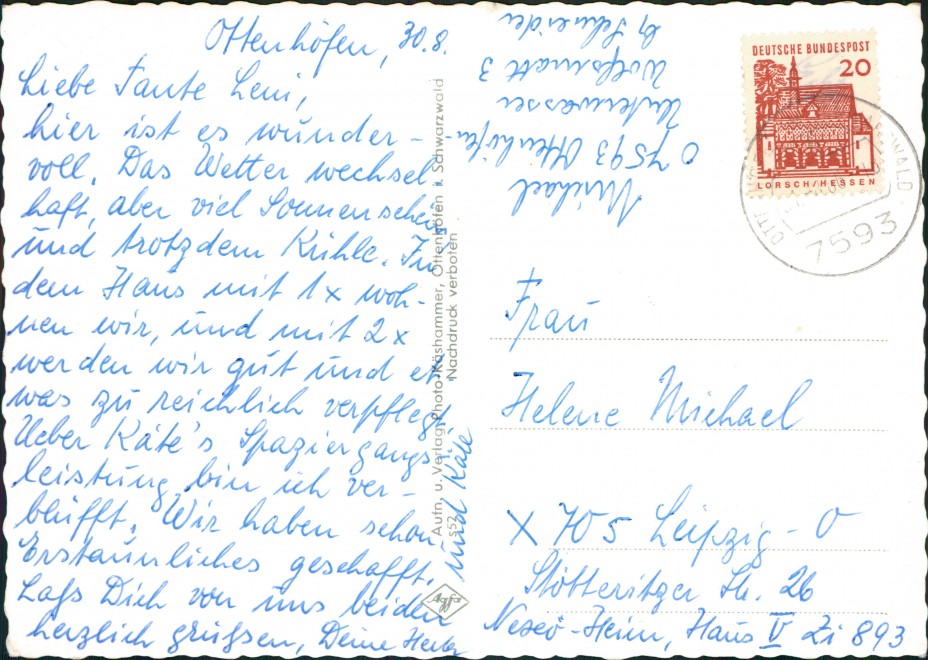 Ottenhöfen, 30.8.
Liebe Tante Leni,
hier ist es wunder-
voll. Das Wetter wechsel
haft, aber viel Sonnenschein
und trotzdem Kühle. In
dem Haus mit 1x woh-
nen wir, und mit 2x
werden wir gut und et
was zu reichlich verpflegt.
Ueber Käte's Spaziergangs-
leistung bin ich ver-
blüfft. Wir haben schon
Erstaunliches geschafft.
Laß Dich von uns beiden
herzlich grüßen, Deine
und Käte
Autn. u. Verlag: Photo-Käshammer, Ottenhöfen i. Schwarzwald
s52 Nachdruck verboten
Agfa
Michael
7593 Ottenhöfen-
Unterwasser
Wolfsmatt 3
b/ Schneider
DEUTSCHE BUNDESPOST
20
LORSCH/HESSEN
7593
Frau
Helene Michael
X 705 Leipzig-O
Stötteritzer Str. 26
Heim, Haus V Zi 893